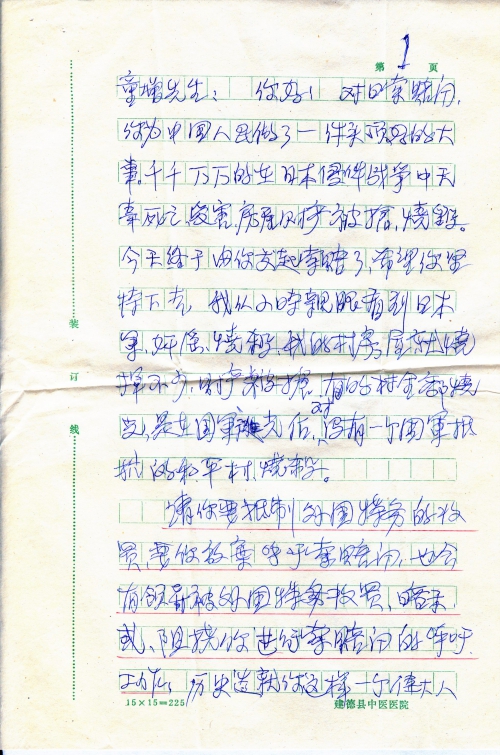 第 1 页
童增先生： 你好！ 对日索赔问，
你为中国人民做了一件头顶好的大
事。千千万万的在日本侵华战争中无
辜死亡、受害、房屋财产被抢，烧毁。
今天终于由你发起索赔了，希望你坚
持下去。我从小时亲眼看到日本
军，奸淫、烧杀，我的村房屋被烧
掉不少，财产被抢，有的村全部烧
光，是在国军 光后，没有一个国军抵
抗的和平村，烧杀。
请你要抵制外国特务的收
买，要你放弃呼吁索赔问，也会
有领导被外国特务收买，暗示
或、阻挠你进行索赔问的呼吁
工作。历史造就你这样一个伟大人
15×15=225
建德县中医医院
装
订
线